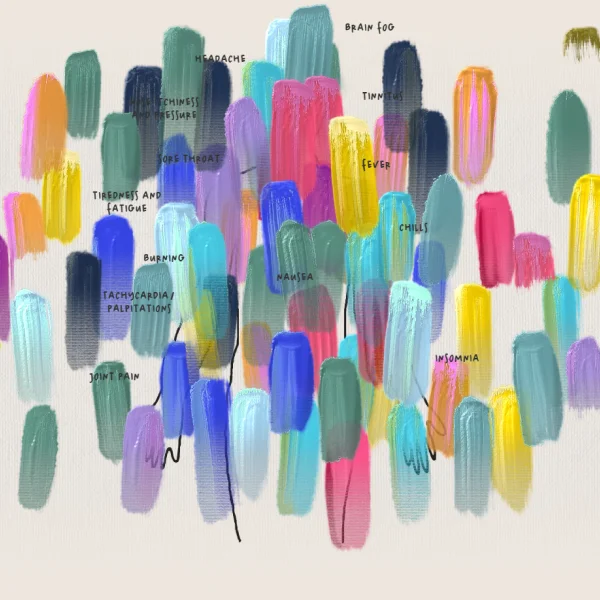 BRAIN FOG
HEADACHE
TINNITUS
ITCHINESS
AND PRESSURE
SORE THROAT
FEVER
TIREDNESS AND
FATIGUE
CHILLS
BURNING
NAUSEA
TACHYCARDIA/
PALPITATIONS
INSOMNIA
JOINT PAIN